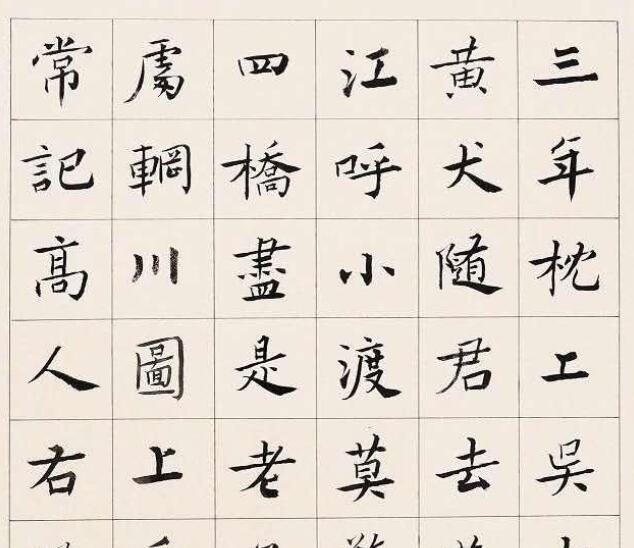 三年枕上吳
黃犬随君去
江呼小渡莫
四橋盡是老
處輞川圖上
常記高人右